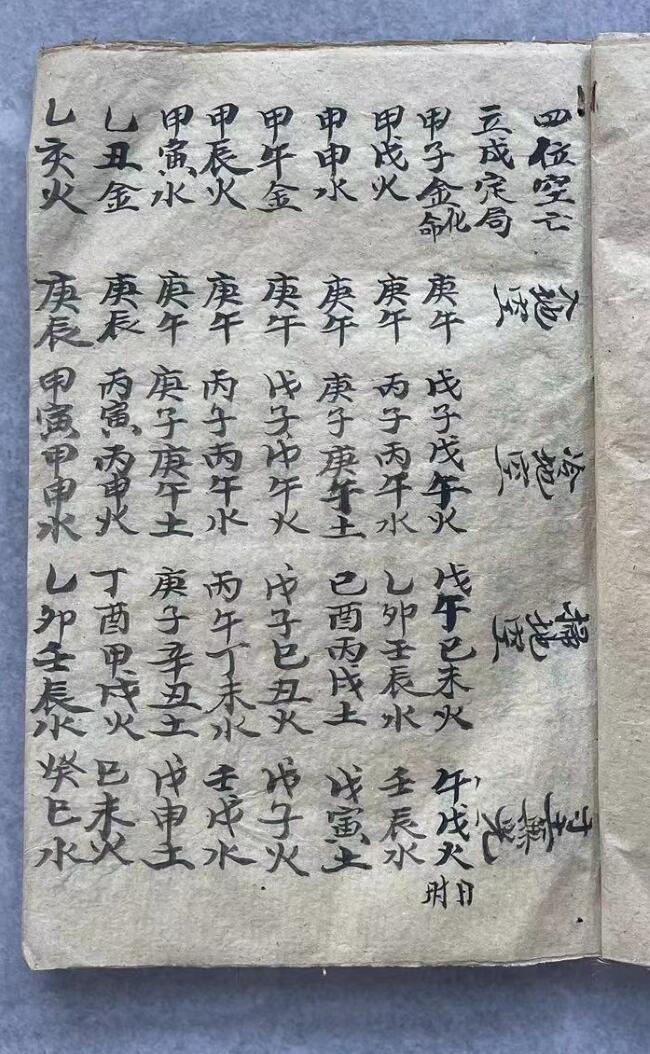 四位空亡
地空
冷地空
掃地空
無光
立成定局
甲子金化命 庚午 戊子戊午火 戊午己未火 午戌火日时
甲戌火 庚午 丙子丙午水 乙卯壬辰水 壬辰水
甲申水 庚午 庚子庚午土 己酉丙戌土 戊寅土
甲午金 庚午 戊子戊午火 戊子己丑火 戊子火
甲辰火 庚午 丙子丙午水 丙午丁未水 壬戌水
甲寅水 庚午 庚子庚午土 庚子辛丑土 戊申土
乙丑金 庚辰 丙寅丙申火 丁酉甲戌火 己未火
乙亥火 庚辰 甲寅甲申水 乙卯壬辰水 癸巳水